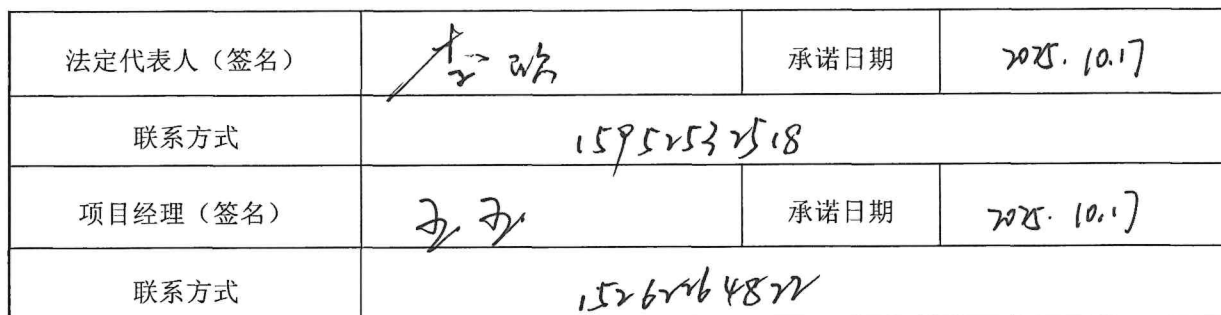 法定代表人（签名） 承诺日期 2025.10.17
联系方式 15952532518
项目经理（签名） 承诺日期 2025.10.17
联系方式 15262264822